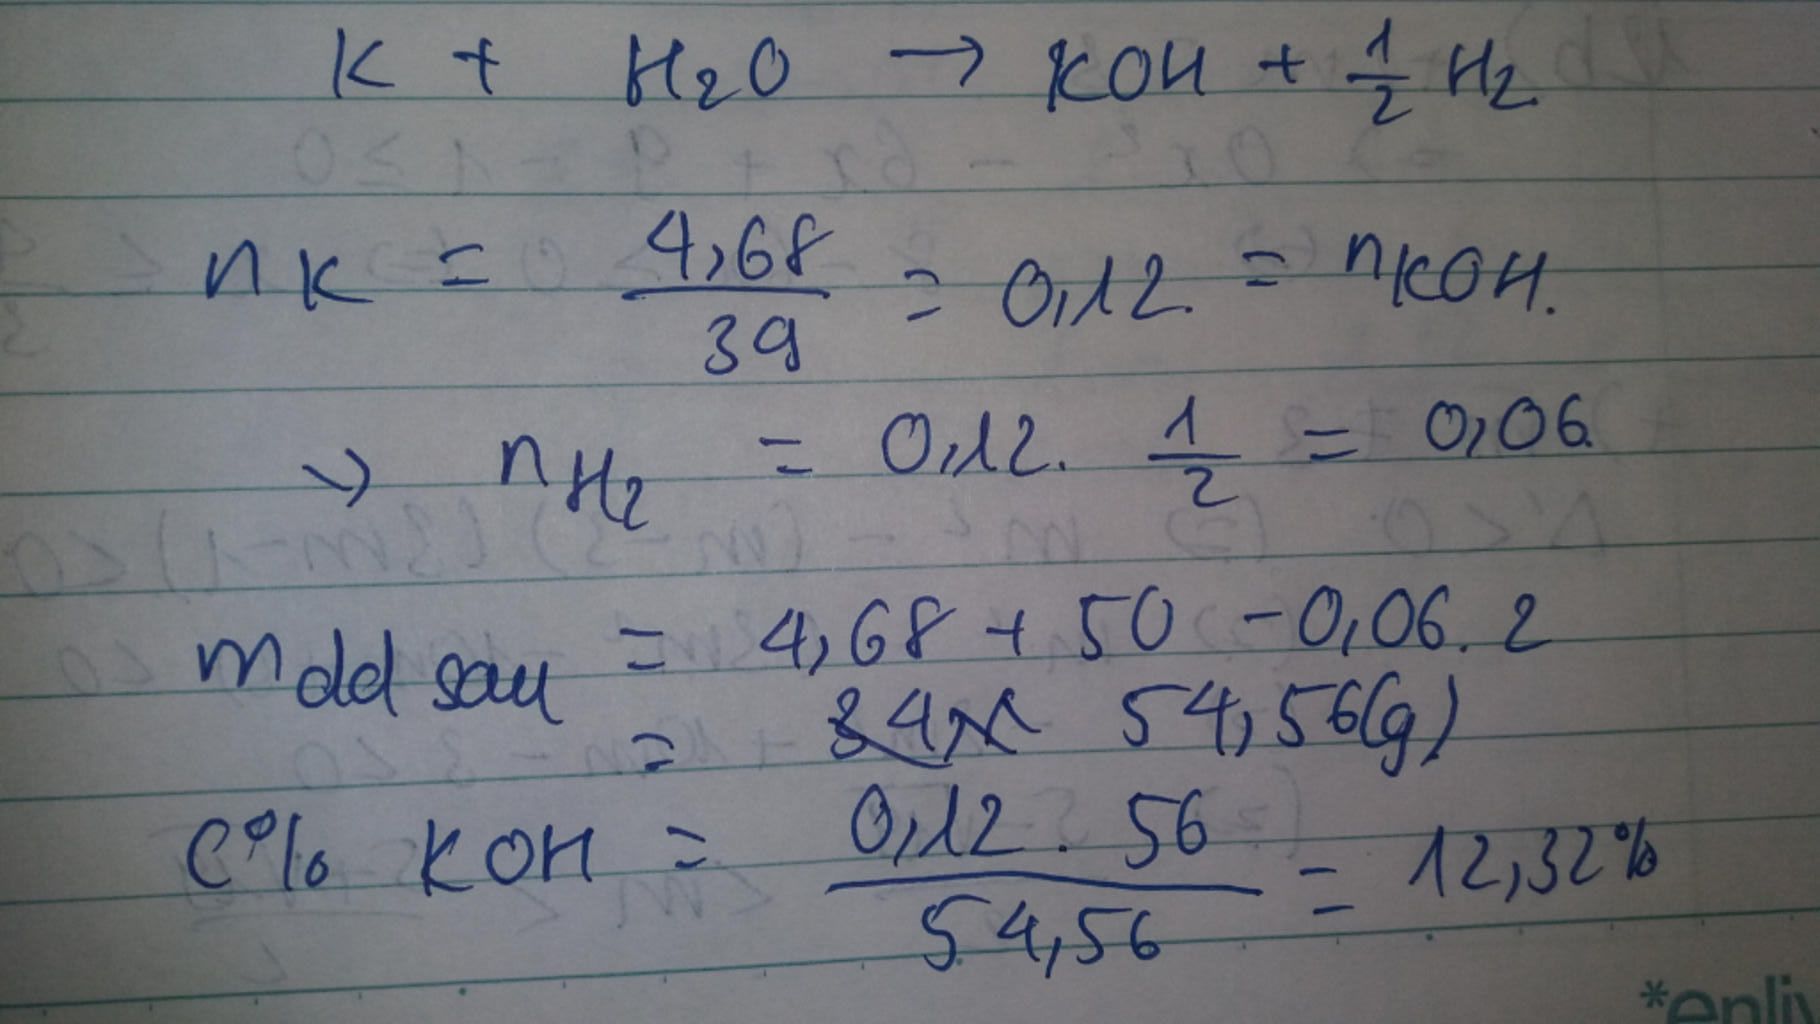 K + H₂O → KOH + 1/2 H₂
nK = 4,68/39 = 0,12 = nKOH.
→ nH₂ = 0,12. 1/2 = 0,06.
m dd sau = 4,68 + 50 - 0,06. 2
= 54,56(g)
C% KOH = 0,12. 56/54,56 = 12,32%
*enliv